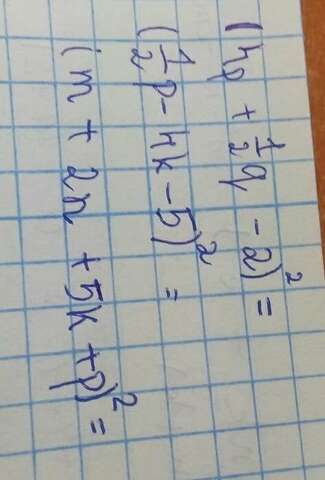 (4p + 1/2 q - 2)² =
(1/2 p - 4k - 5)² =
(m + 2n + 5k + p)² =